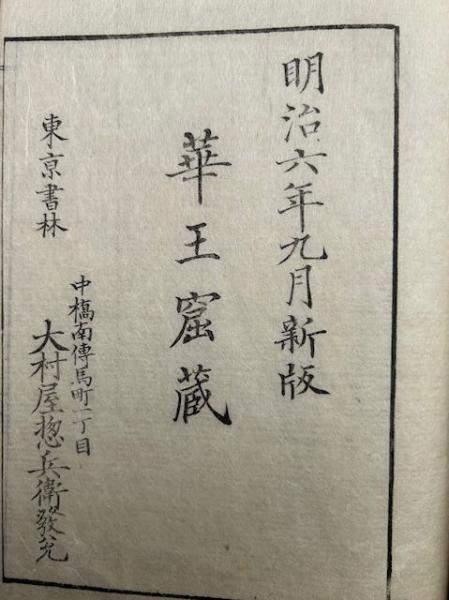 明治六年九月新版
華王窟蔵
東亰書林
中橋南傳馬町一丁目
大村屋惣兵衛發兌